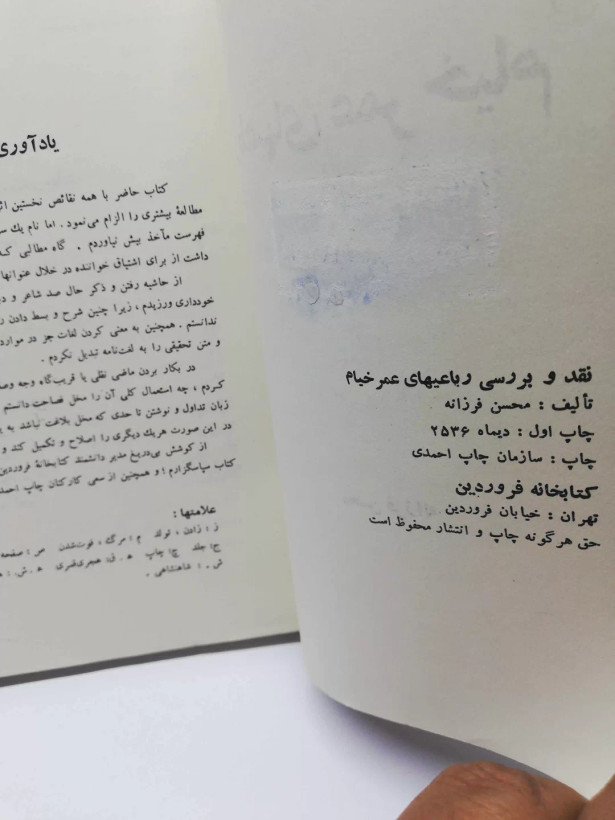 نقد و بررسی رباعیهای عمر خیام
تألیف : محسن فرزانه
چاپ اول : دیماه ۲۵۳۶
چاپ : سازمان چاپ احمدی
کتابخانه فروردین
تهران : خیابان فروردین
حق هرگونه چاپ و انتشار محفوظ است
یادآوری
کتاب حاضر با همه نقائص نخستین اثر
مطالعهٔ بیشتری را الزام می‌نمود . اما نام یك
فهرست مآخذ بیش نیاوردم . گاه مطالبی
داشت از برای اشتیاق خواننده در خلال عنوانها
از حاشیه رفتن و ذکر حال صد شاعر و
خودداری ورزیدم ، زیرا چنین شرح و بسط دادن
ندانستم . همچنین به معنی کردن لغات جز در موارد
و متن تحقیقی را به لغت‌نامه تبدیل نکردم .
در بکار بردن ماضی نقلی یا قریب‌گاه وجه
کردم ، چه استعمال کلی آن را مخل فصاحت دانستم
زبان تداول و نوشتن تا حدی که مخل بلاغت نباشد به
در این صورت هریك دیگری را اصلاح و تکمیل کند و
از کوشش بی‌دریغ مدیر دانشمند کتابخانهٔ فروردین
کتاب سپاسگزارم ؛ و همچنین از سعی کارکنان چاپ
علامتها :
ز : زادن ، تولد م : مرگ ، فوت‌شدن ص : صفحه
ج: جلد چ: چاپ ه . ق: هجری‌قمری ه . ش. :
ش . : شاهنشاهی .